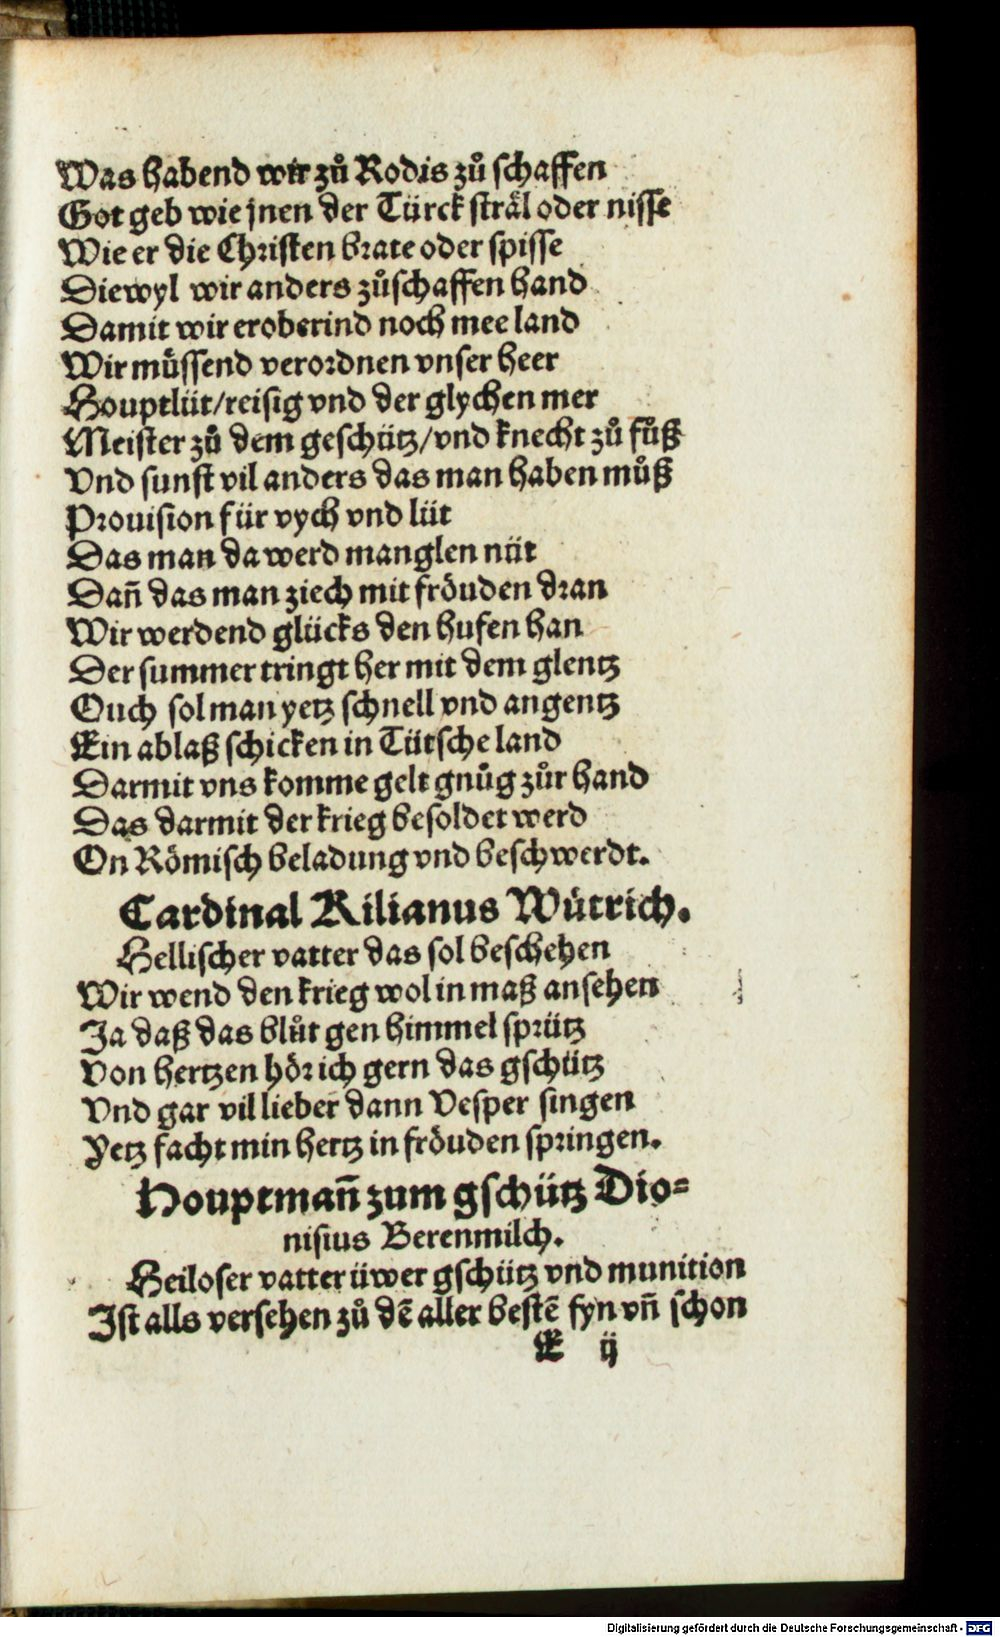 Was habend wir zů Rodis zů schaffen
Got geb wie jnen der Türck sträl oder nisse
Wie er die Christen brate oder spisse
Diewyl wir anders zůschaffen hand
Damit wir eroberind noch mee land
Wir müssend verordnen vnser heer
Houptlüt/reisig vnd der glychen mer
Meister zů dem geschütz/vnd knecht zů fůß
Vnd sunst vil anders das man haben můß
Prouision für vych vnd lüt
Das man da werd manglen nüt
Dañ das man ziech mit fröuden dran
Wir werdend glücks den hufen han
Der summer tringt her mit dem glentz
Ouch sol man yetz schnell vnd angentz
Ein ablaß schicken in Tütsche land
Darmit vns komme gelt gnůg zůr hand
Das darmit der krieg besoldet werd
On Römisch beladung vnd beschwerdt.
Cardinal Kilianus Wütrich.
Hellischer vatter das sol beschehen
Wir wend den krieg wol in maß ansehen
Ja daß das blůt gen himmel sprütz
Von hertzen hör ich gern das gschütz
Vnd gar vil lieber dann Vesper singen
Yetz facht min hertz in fröuden springen.
Houptmañ zum gschütz Dio⸗
nisius Berenmilch.
Heiloser vatter üwer gschütz vnd munition
Ist alls versehen zů dẽ aller bestẽ fyn vñ schon
E ij
Digitalisierung gefördert durch die Deutsche Forschungsgemeinschaft - DFG